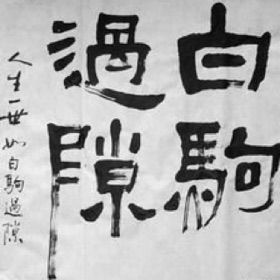 白駒
過隙
人生一世如白駒過隙